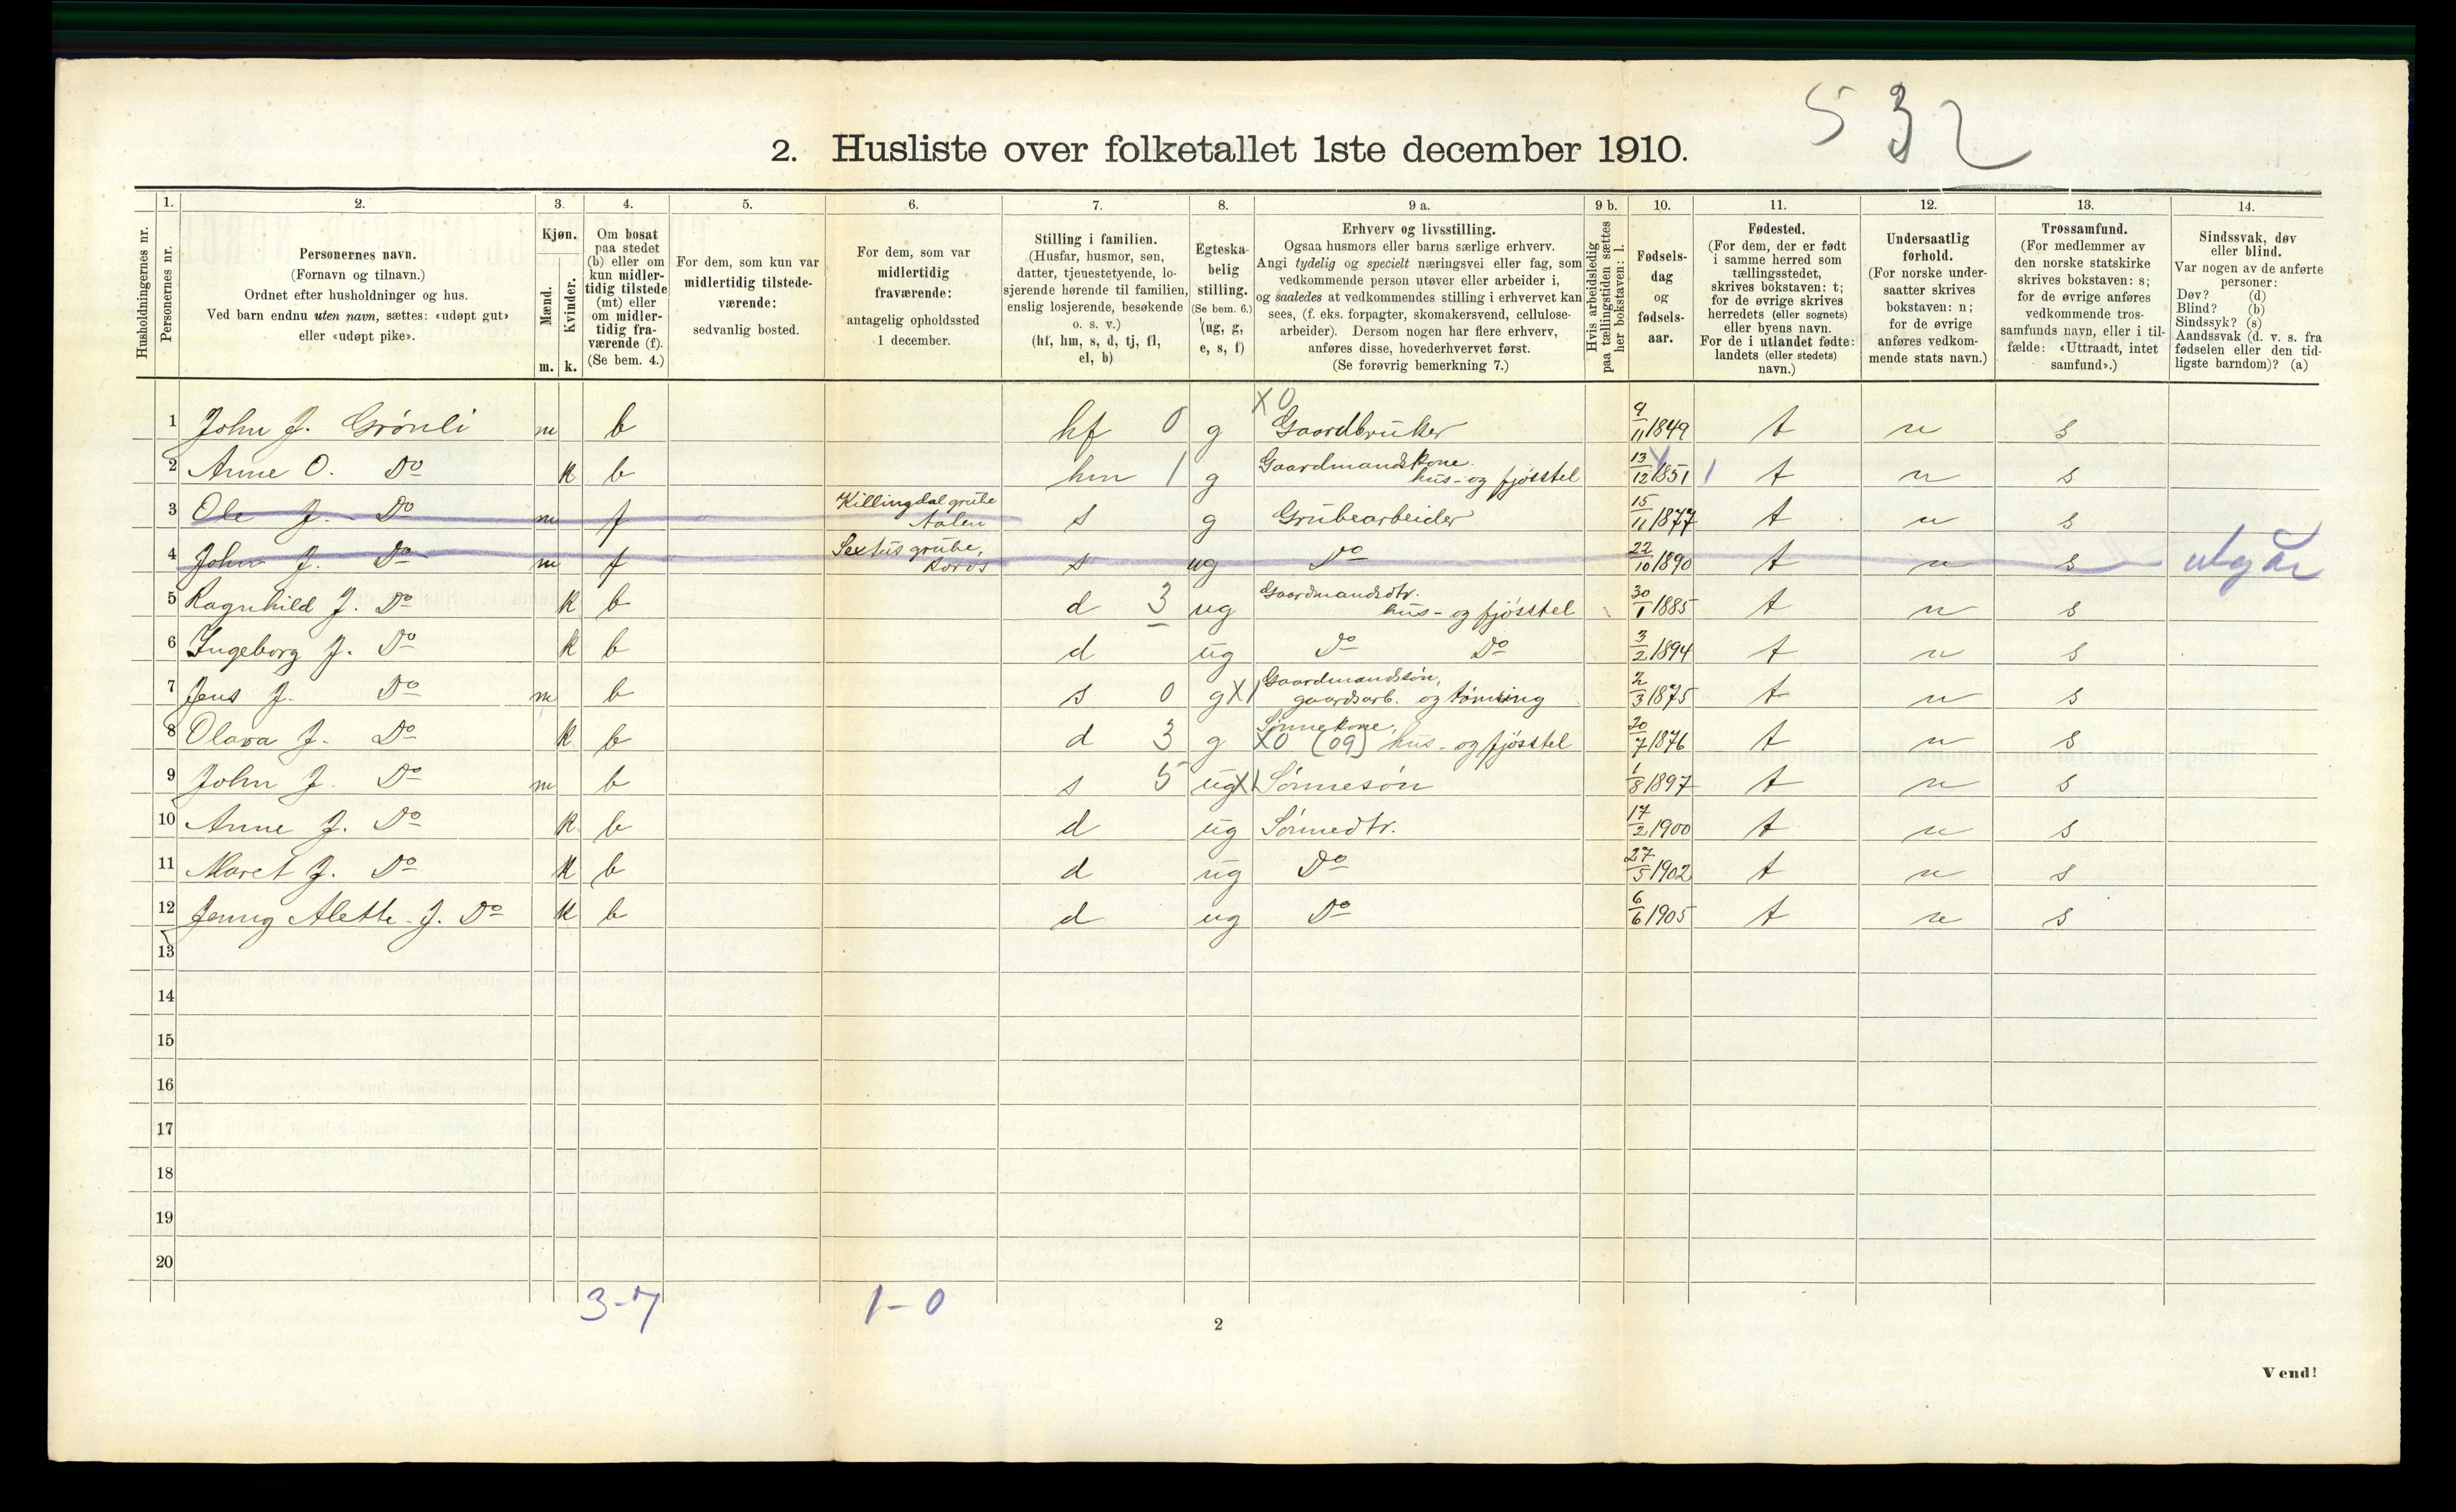 532
2. Husliste over folketallet 1ste december 1910.
Husholdningernes nr.
1.
Personernes nr.
2.
Personernes navn.
(Fornavn og tilnavn.)
Ordnet efter husholdninger og hus.
Ved barn endnu uten navn, sættes: «udøpt gut»
eller «udøpt pike».
3.
Kjøn.
Mænd.
Kvinder.
m. k.
4.
Om bosat
paa stedet
(b) eller om
kun midler-
tidig tilstede
(mt) eller
om midler-
tidig fra-
værende (f).
(Se bem. 4.)
5.
For dem, som kun var
midlertidig tilstede-
værende:
sedvanlig bosted.
6.
For dem, som var
midlertidig
fraværende:
antagelig opholdssted
1 december.
7.
Stilling i familien.
(Husfar, husmor, søn,
datter, tjenestetyende, lo-
sjerende hørende til familien,
enslig losjerende, besøkende
o. s. v.)
(hf, hm, s, d, tj, fl,
el, b)
8.
Egteska-
belig
stilling.
(Se bem. 6.)
(ug, g,
e, s, f)
9 a.
Erhverv og livsstilling.
Ogsaa husmors eller barns særlige erhverv.
Angi tydelig og specielt næringsvei eller fag, som
vedkommende person utøver eller arbeider i,
og saaledes at vedkommendes stilling i erhvervet kan
sees, (f. eks. forpagter, skomakersvend, cellulose-
arbeider). Dersom nogen har flere erhverv,
anføres disse, hovederhvervet først.
(Se forøvrig bemerkning 7.)
9 b.
Hvis arbeidsledig
paa tællingstiden sættes
her bokstaven: l.
10.
Fødsels-
dag
og
fødsels-
aar.
11.
Fødested.
(For dem, der er født
i samme herred som
tællingsstedet,
skrives bokstaven: t;
for de øvrige skrives
herredets (eller sognets)
eller byens navn.
For de i utlandet fødte:
landets (eller stedets)
navn.)
12.
Undersaatlig
forhold.
(For norske under-
saatter skrives
bokstaven: n;
for de øvrige
anføres vedkom-
mende stats navn.)
13.
Trossamfund.
(For medlemmer av
den norske statskirke
skrives bokstaven: s;
for de øvrige anføres
vedkommende tros-
samfunds navn, eller i til-
fælde: «Uttraadt, intet
samfund».)
14.
Sindssvak, døv
eller blind.
Var nogen av de anførte
personer:
Døv? (d)
Blind? (b)
Sindssyk? (s)
Aandssvak (d. v. s. fra
fødselen eller den tid-
ligste barndom)? (a)
1 John J. Grönli m b hf 0 g X0 Gaardbruker 9/11 1849 t n s
2 Anne O. Do k b hm 1 g Gaardmandskone. hus- og fjösstel 13/12 1851 1 t n s
3 Ole J. Do m f Killingdal grube Aalen s g Grubearbeider 15/11 1877 t n s
4 John J. Do m f Sextus grube, Röros s ug Do 22/10 1890 t n s utgår
5 Ragnhild J. Do k b d 3 ug Gaardmandsdtr. hus- og fjösstel 30/1 1885 t n s
6 Ingeborg J. Do k b d ug Do Do 3/2 1894 t n s
7 Jens J. Do m b s 0 g X1 Gaardmandsön, gaardsarb. og tömring 2/3 1875 t n s
8 Olava J. Do k b d 3 g Sönnekone, X0 (09) hus- og fjösstel 20/7 1876 t n s
9 John J. Do m b s 5 ug X1 Sönnesön 1/8 1897 t n s
10 Anne J. Do k b d ug Sönnedtr. 17/2 1900 t n s
11 Maret J. Do k b d ug Do 27/5 1902 t n s
12 Jenny Alette J. Do k b d ug Do 6/6 1905 t n s
13
14
15
16
17
18
19
20
3-7 1-0
2
Vend!